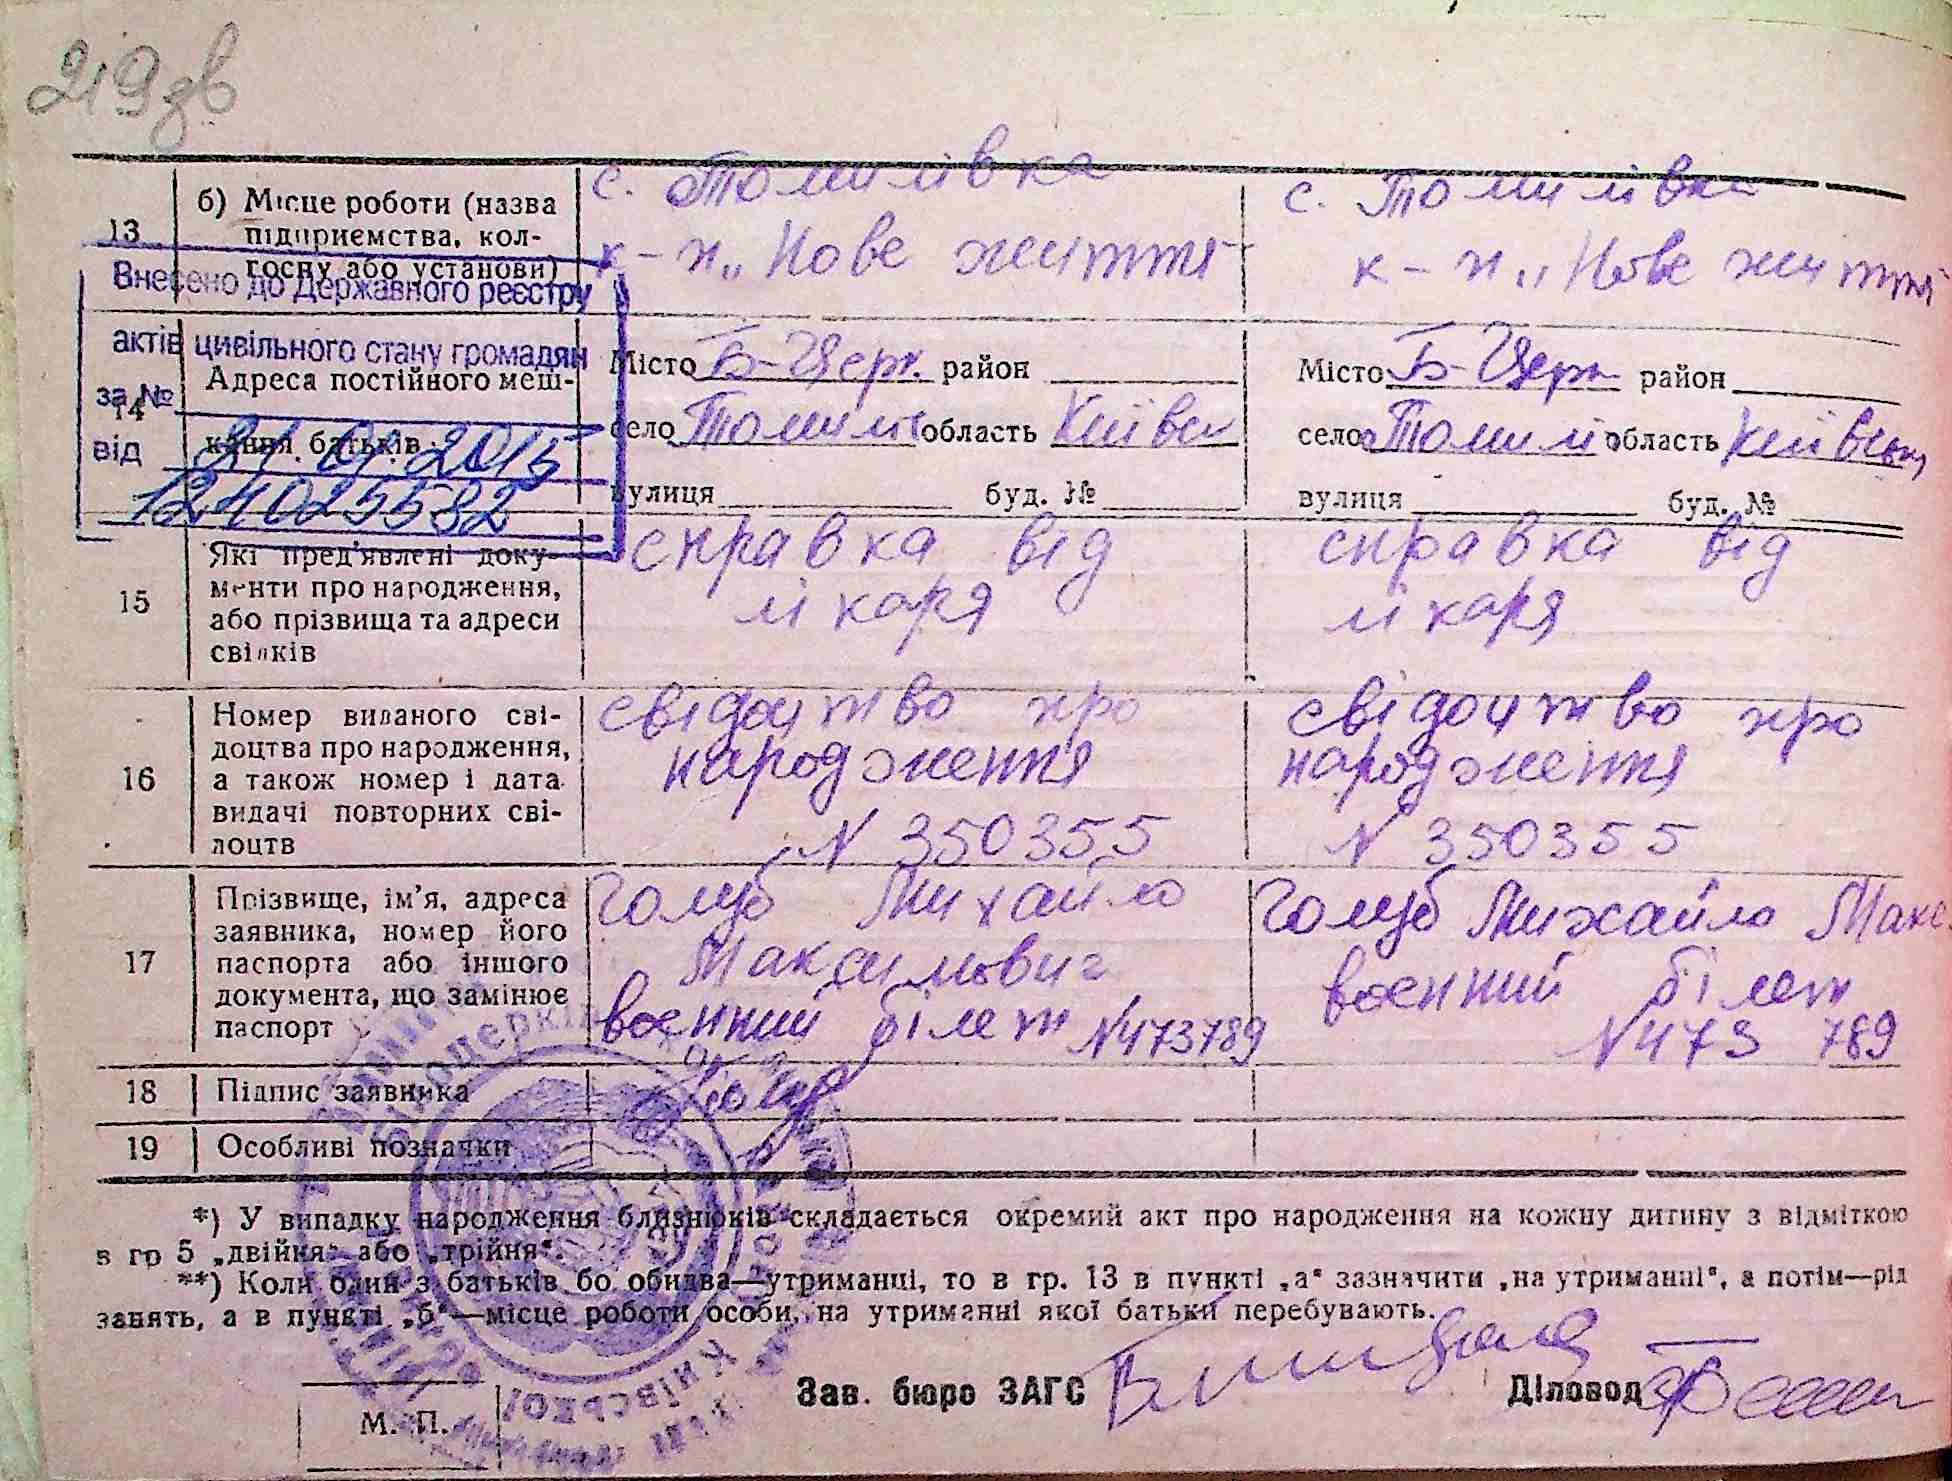 219зв
13 б) Місце роботи (назва підприємства, колгоспу або установи)
с. Томилівка
к-п „Нове життя
с. Томилівка
к-п „Нове життя
Внесено до Державного реєстру
актів цивільного стану громадян
за №
від 21.01.2015
124025582
14 Адреса постійного мешкання батьків
Місто Б-Церк. район
село Томилі область Київсь
вулиця буд. №
Місто Б-Церк район
село Томилі область Київськ
вулиця буд. №
15 Які пред'явлені документи про народження, або прізвища та адреси свідків
справка від
лікаря
справка від
лікаря
16 Номер виданого свідоцтва про народження, а також номер і дата видачі повторних свідоцтв
свідоцтво про
народження
N 350355
свідоцтво про
народження
N 350355
17 Прізвище, ім'я, адреса заявника, номер його паспорта або іншого документа, що замінює паспорт
Голуб Михайло
Максимович
военний білет N473789
Голуб Михайло Макс.
военний білет
N473 789
18 Підпис заявника
Голуб
19 Особливі позначки
*) У випадку народження близнюків складається окремий акт про народження на кожну дитину з відміткою
в гр 5 „двійня" або „трійня".
**) Коли один з батьків бо обидва—утриманці, то в гр. 13 в пункті „а" зазначити „на утриманні", а потім—рід
занять, а в пункті „б"—місце роботи особи, на утриманні якої батьки перебувають.
Зав. бюро ЗАГС
Діловод
М. П.